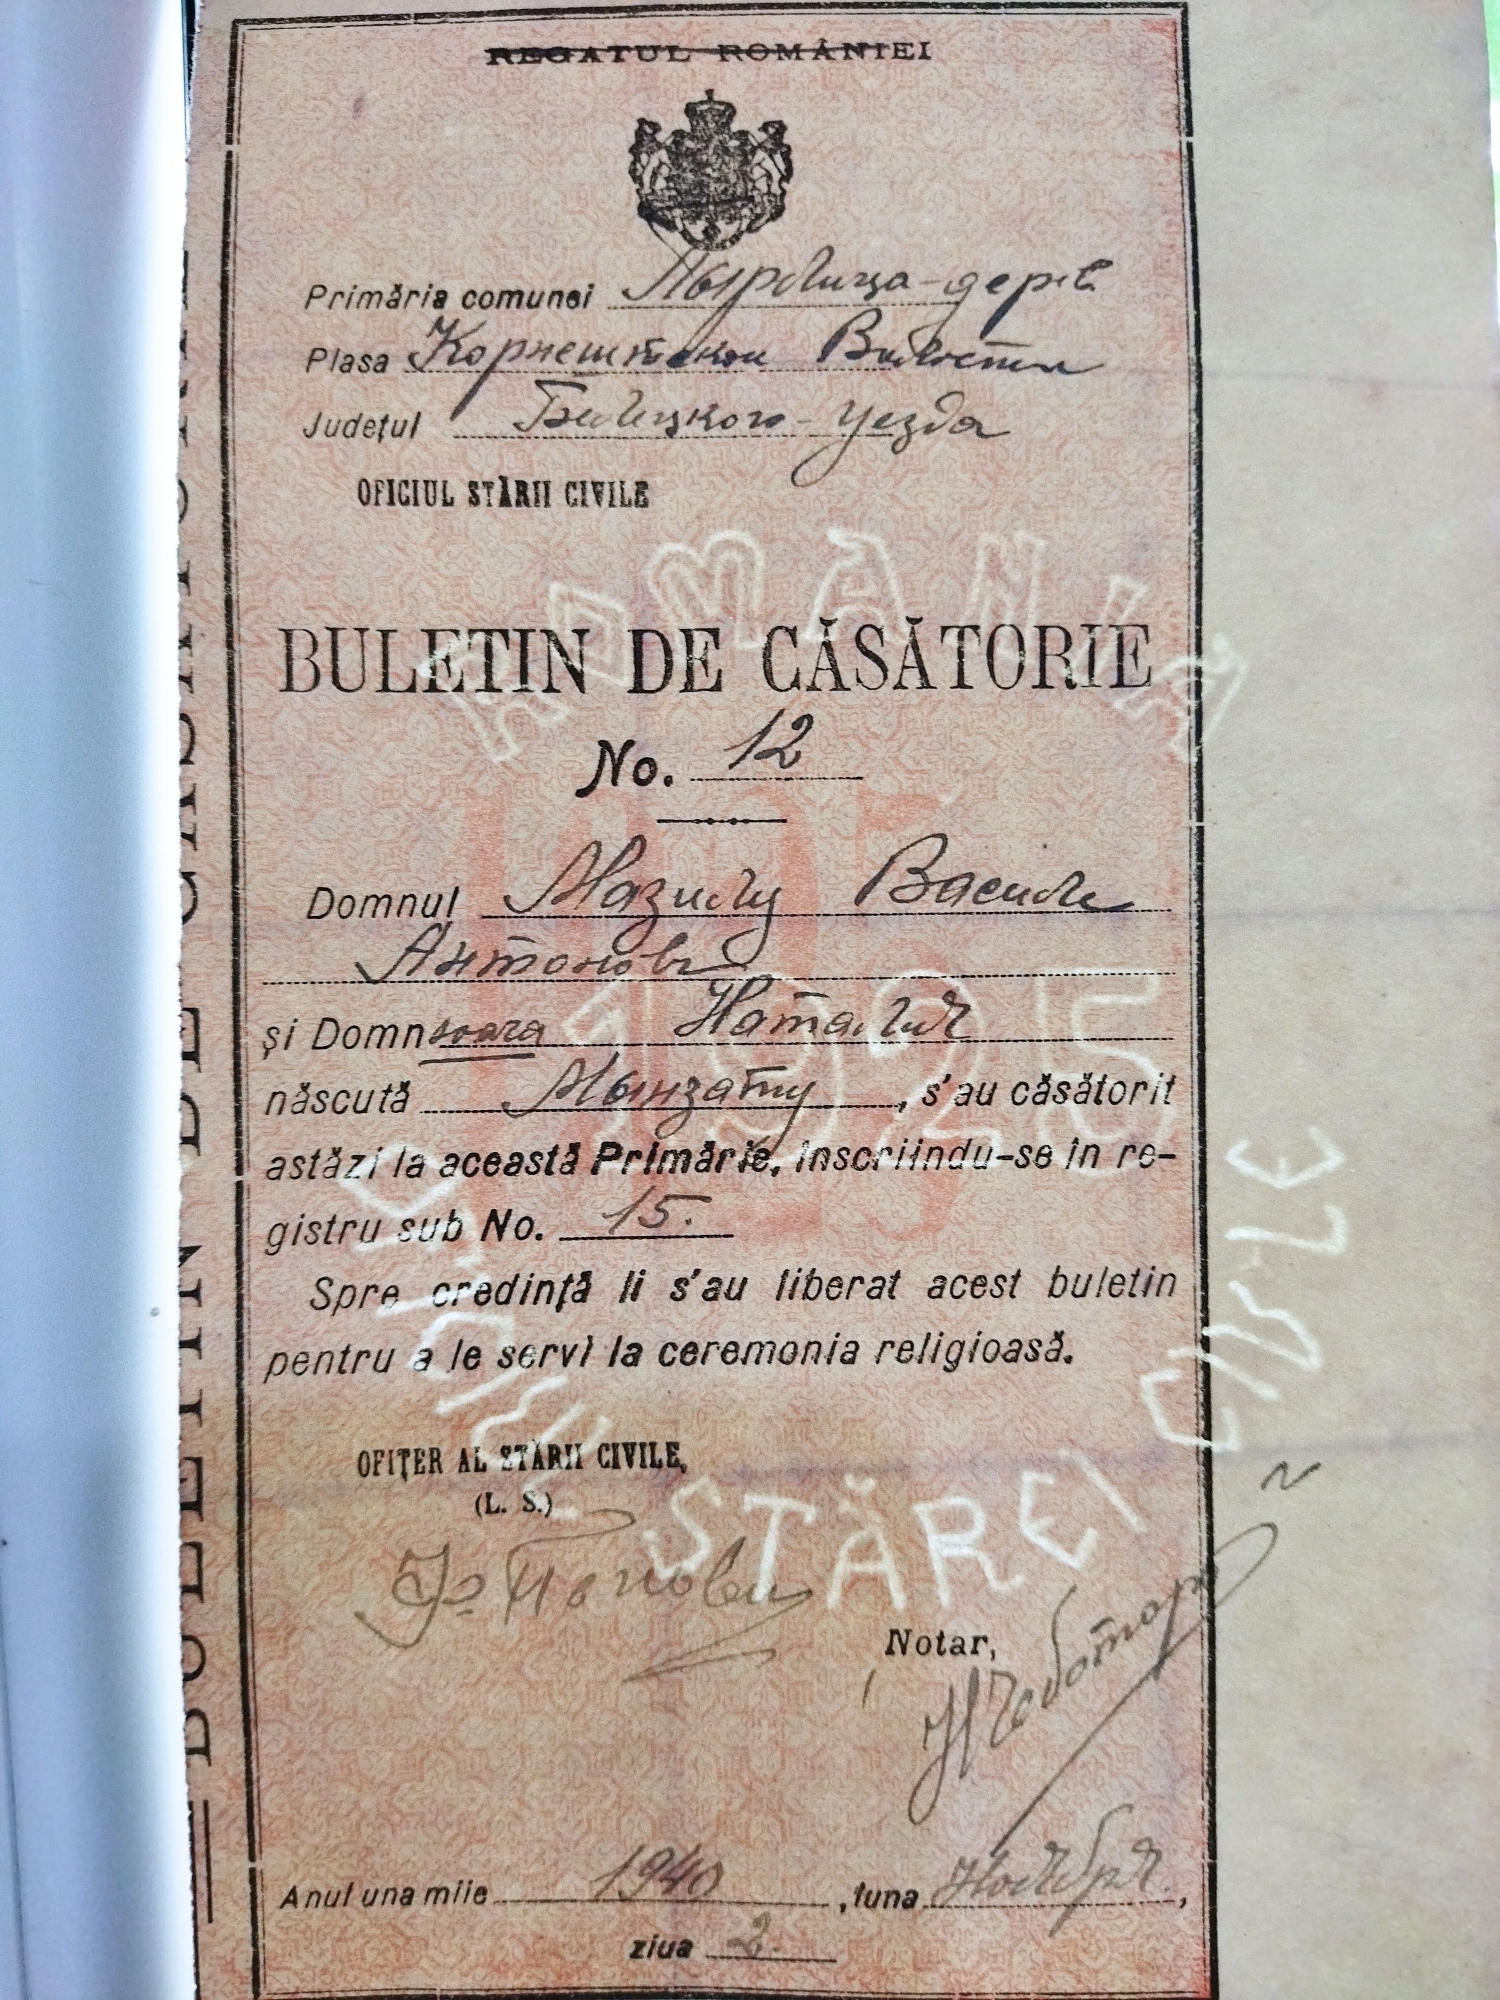 REGATUL ROMÂNIEI
Primăria comunei Пырлица-дерев.
Plasa Корнештской Волости
Județul Бельцкого-уезда
OFICIUL STĂRII CIVILE
BULETIN DE CĂSĂTORIE
No. 12
Domnul Мазилу Василе
Антонов
și Domnșoara Наталия
născută Мынзату, s'au căsătorit
astăzi la această Primărie, inscriindu-se în re-
gistru sub No. 15.
Spre credință li s'au liberat acest buletin
pentru a le servi la ceremonia religioasă.
OFIȚER AL STĂRII CIVILE,
(L. S.)
Notar,
Anul una miie 1940, luna Ноября,
ziua 2.
BULETIN DE CĂSĂTORIE
ROMANIA
1925
STĂREI
CIVILE